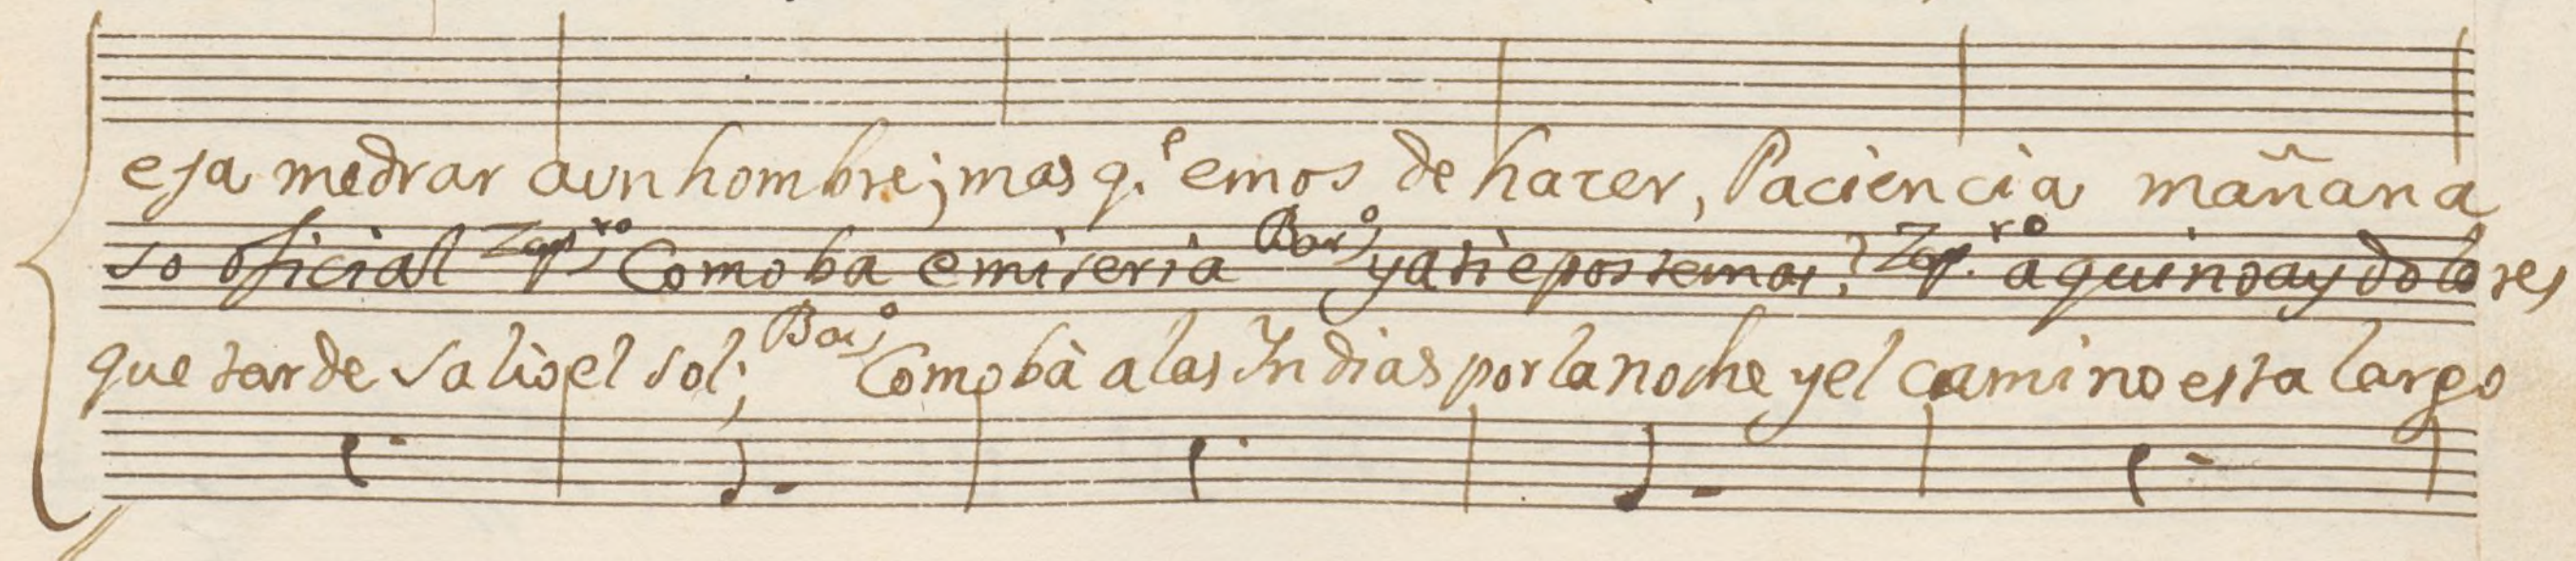 eja medrar aun hombre; mas q.e emos de hacer, Paciencia mañana
so oficial Zap.ro Como ba e miseria Bar.o ya ti e postemas? Zap.ro a qui no ay dolores
que tarde salió el sol; Bar.o Como bà a las Indias por la noche y el camino esta largo